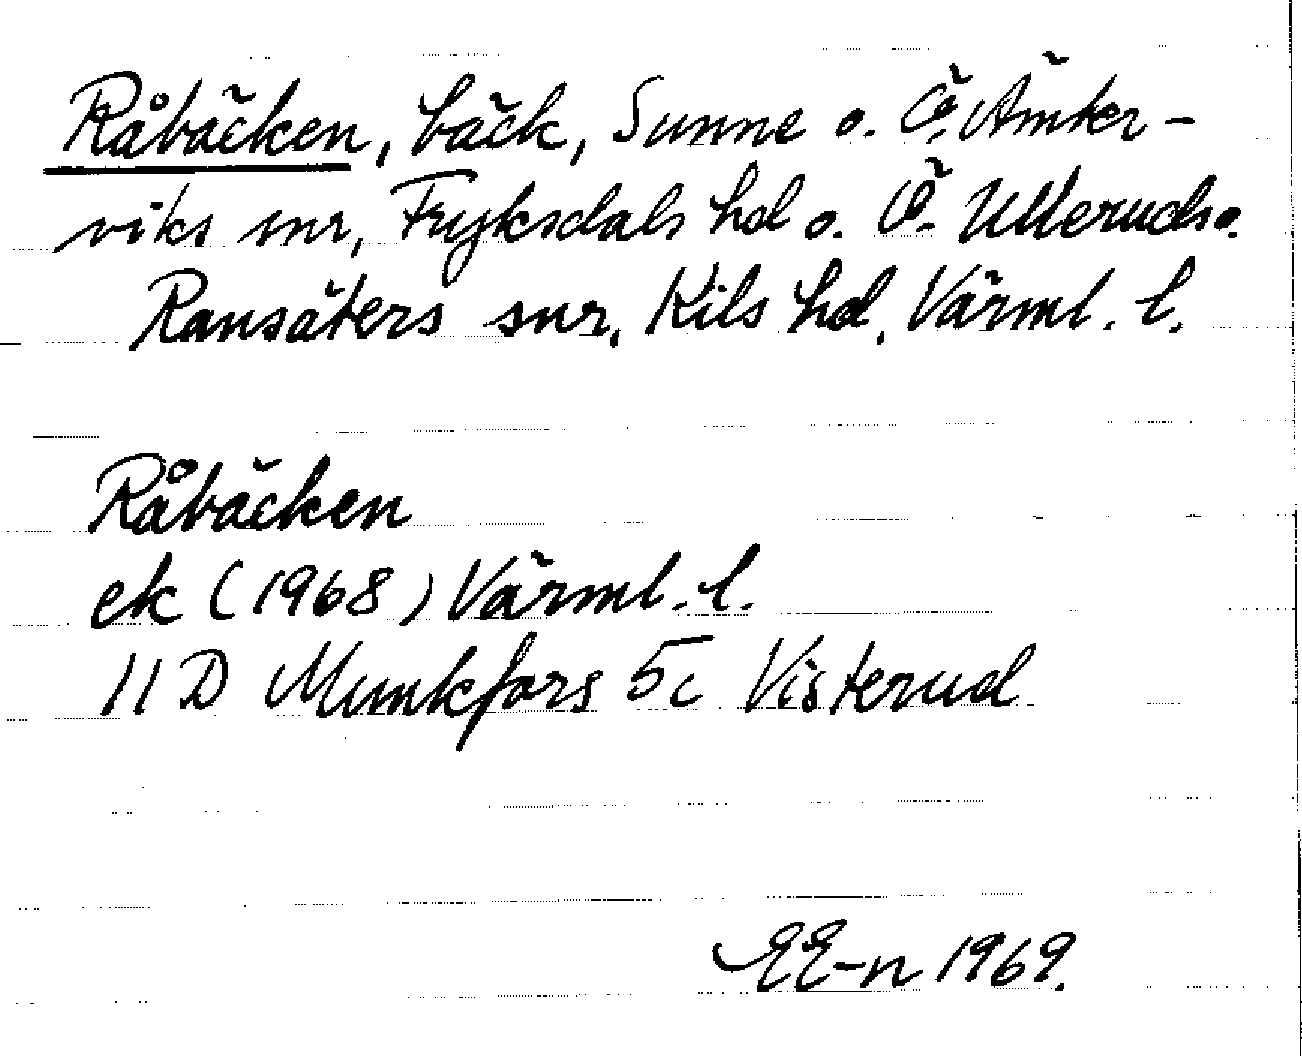 Råbäcken, bäck, Sunne o. Ö. Ämter-
viks snr, Fryksdals hd o. Ö. Ulleruds o.
Ransäters snr, Kils hd, Värml. l.
Råbäcken
ek (1968) Värml. l.
11 D Munkfors 5c Visterud
EE-n 1969.